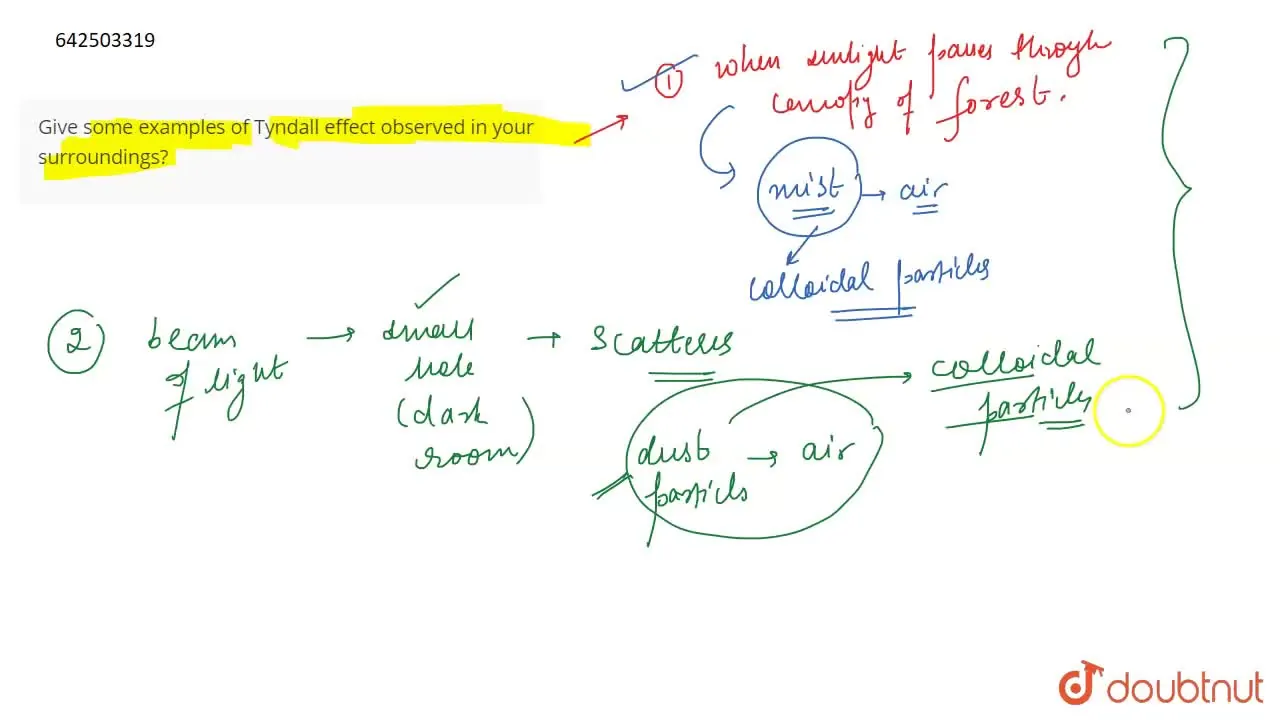 642503319
Give some examples of Tyndall effect observed in your
surroundings?
① when sunlight passes through
canopy of forest.
mist → air
colloidal particles
② beam → small → scatters
of light hole
(dark
room)
dust → air
particls
colloidal
particles
doubtnut